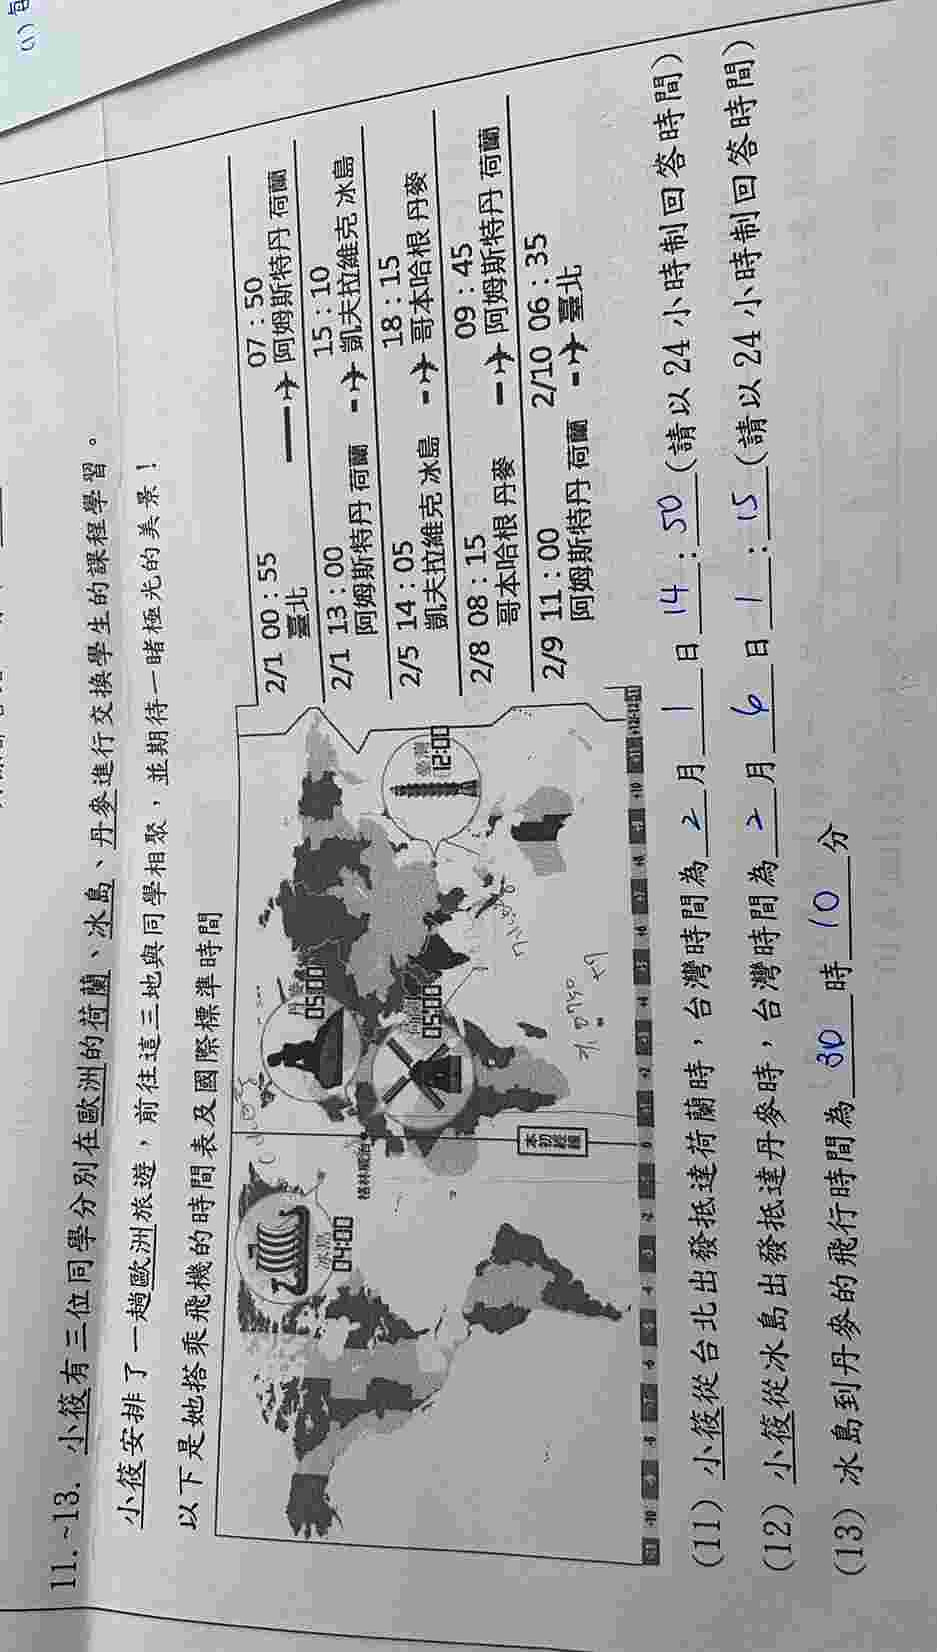 11.~13. 小筱有三位同學分別在歐洲的荷蘭、冰島、丹麥進行交換學生的課程學習。
小筱安排了一趟歐洲旅遊，前往這三地與同學相聚，並期待一睹極光的美景！
以下是她搭乘飛機的時間表及國際標準時間
冰島
04:00
格林威治
本初經線
丹麥
05:00
荷蘭
05:00
臺灣
12:00
2/1 00：55 07：50
臺北 阿姆斯特丹 荷蘭
2/1 13：00 15：10
阿姆斯特丹 荷蘭 凱夫拉維克 冰島
2/5 14：05 18：15
凱夫拉維克 冰島 哥本哈根 丹麥
2/8 08：15 09：45
哥本哈根 丹麥 阿姆斯特丹 荷蘭
2/9 11：00 2/10 06：35
阿姆斯特丹 荷蘭 臺北
(11) 小筱從台北出發抵達荷蘭時，台灣時間為 2 月 1 日 14：50 (請以 24 小時制回答時間)
(12) 小筱從冰島出發抵達丹麥時，台灣時間為 2 月 6 日 1：15 (請以 24 小時制回答時間)
(13) 冰島到丹麥的飛行時間為 30 時 10 分